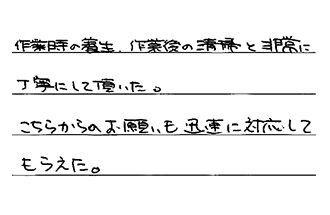 作業時の養生、作業後の清掃と非常に
丁寧にして頂いた。
こちらからのお願いも迅速に対応して
もらえた。